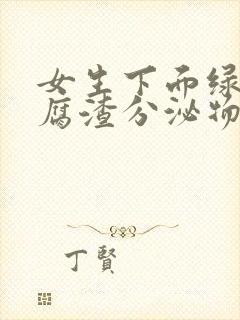 女生下面绿豆
腐渣分泌物
丁賢